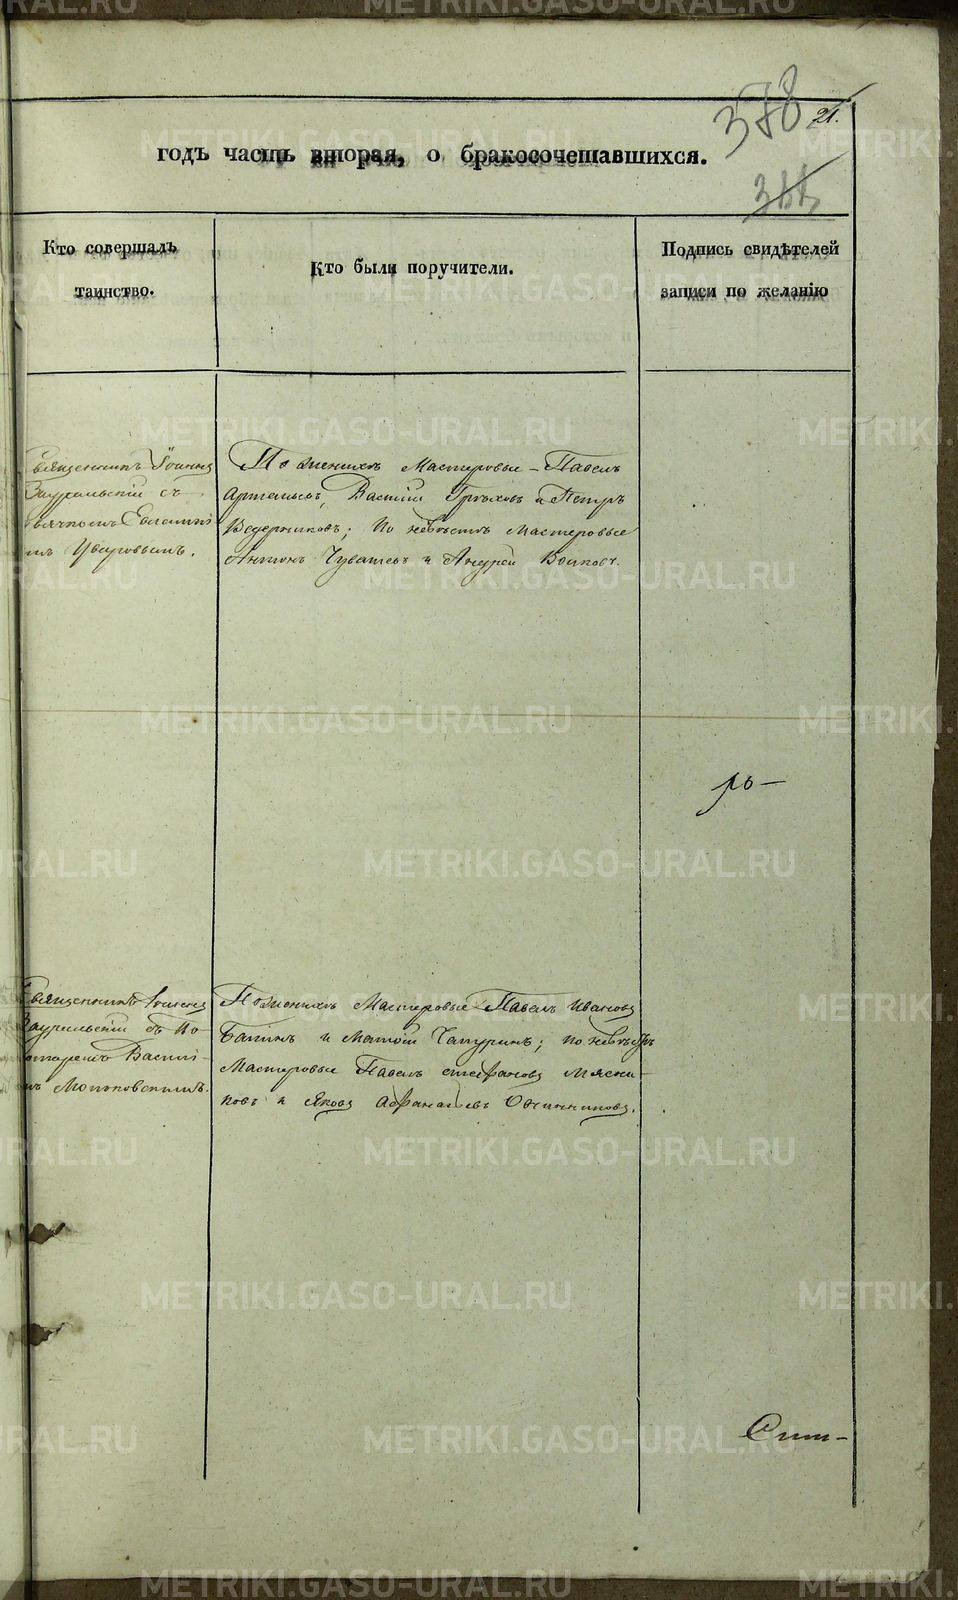 378
21.
годъ часть вторая, о бракосочетавшихся.
Кто совершалъ
таинство.
Кто были поручители.
Подпись свидѣтелей
записи по желанію
Священникъ Іоаннъ
Зауральскій съ
Уваровымъ.
По женихѣ Мастеровые – Павелъ
Артемьевъ, Василій Грѣховъ и Петръ
Ведерниковъ; По невѣстѣ мастеровые
Антонъ Чувашевъ и Андрей
ръ–
Священникъ Іоаннъ
Зауральскій съ По-
номаремъ Василі-
По женихѣ Мастеровые Павелъ Ивановъ
и Матѳій Чатуринъ; по невѣстѣ
Мастеровые Павелъ Стефановъ Мясни-
ковъ и Яковъ Афанасьевъ Овчинниковъ.
METRIKI.GASO-URAL.RU